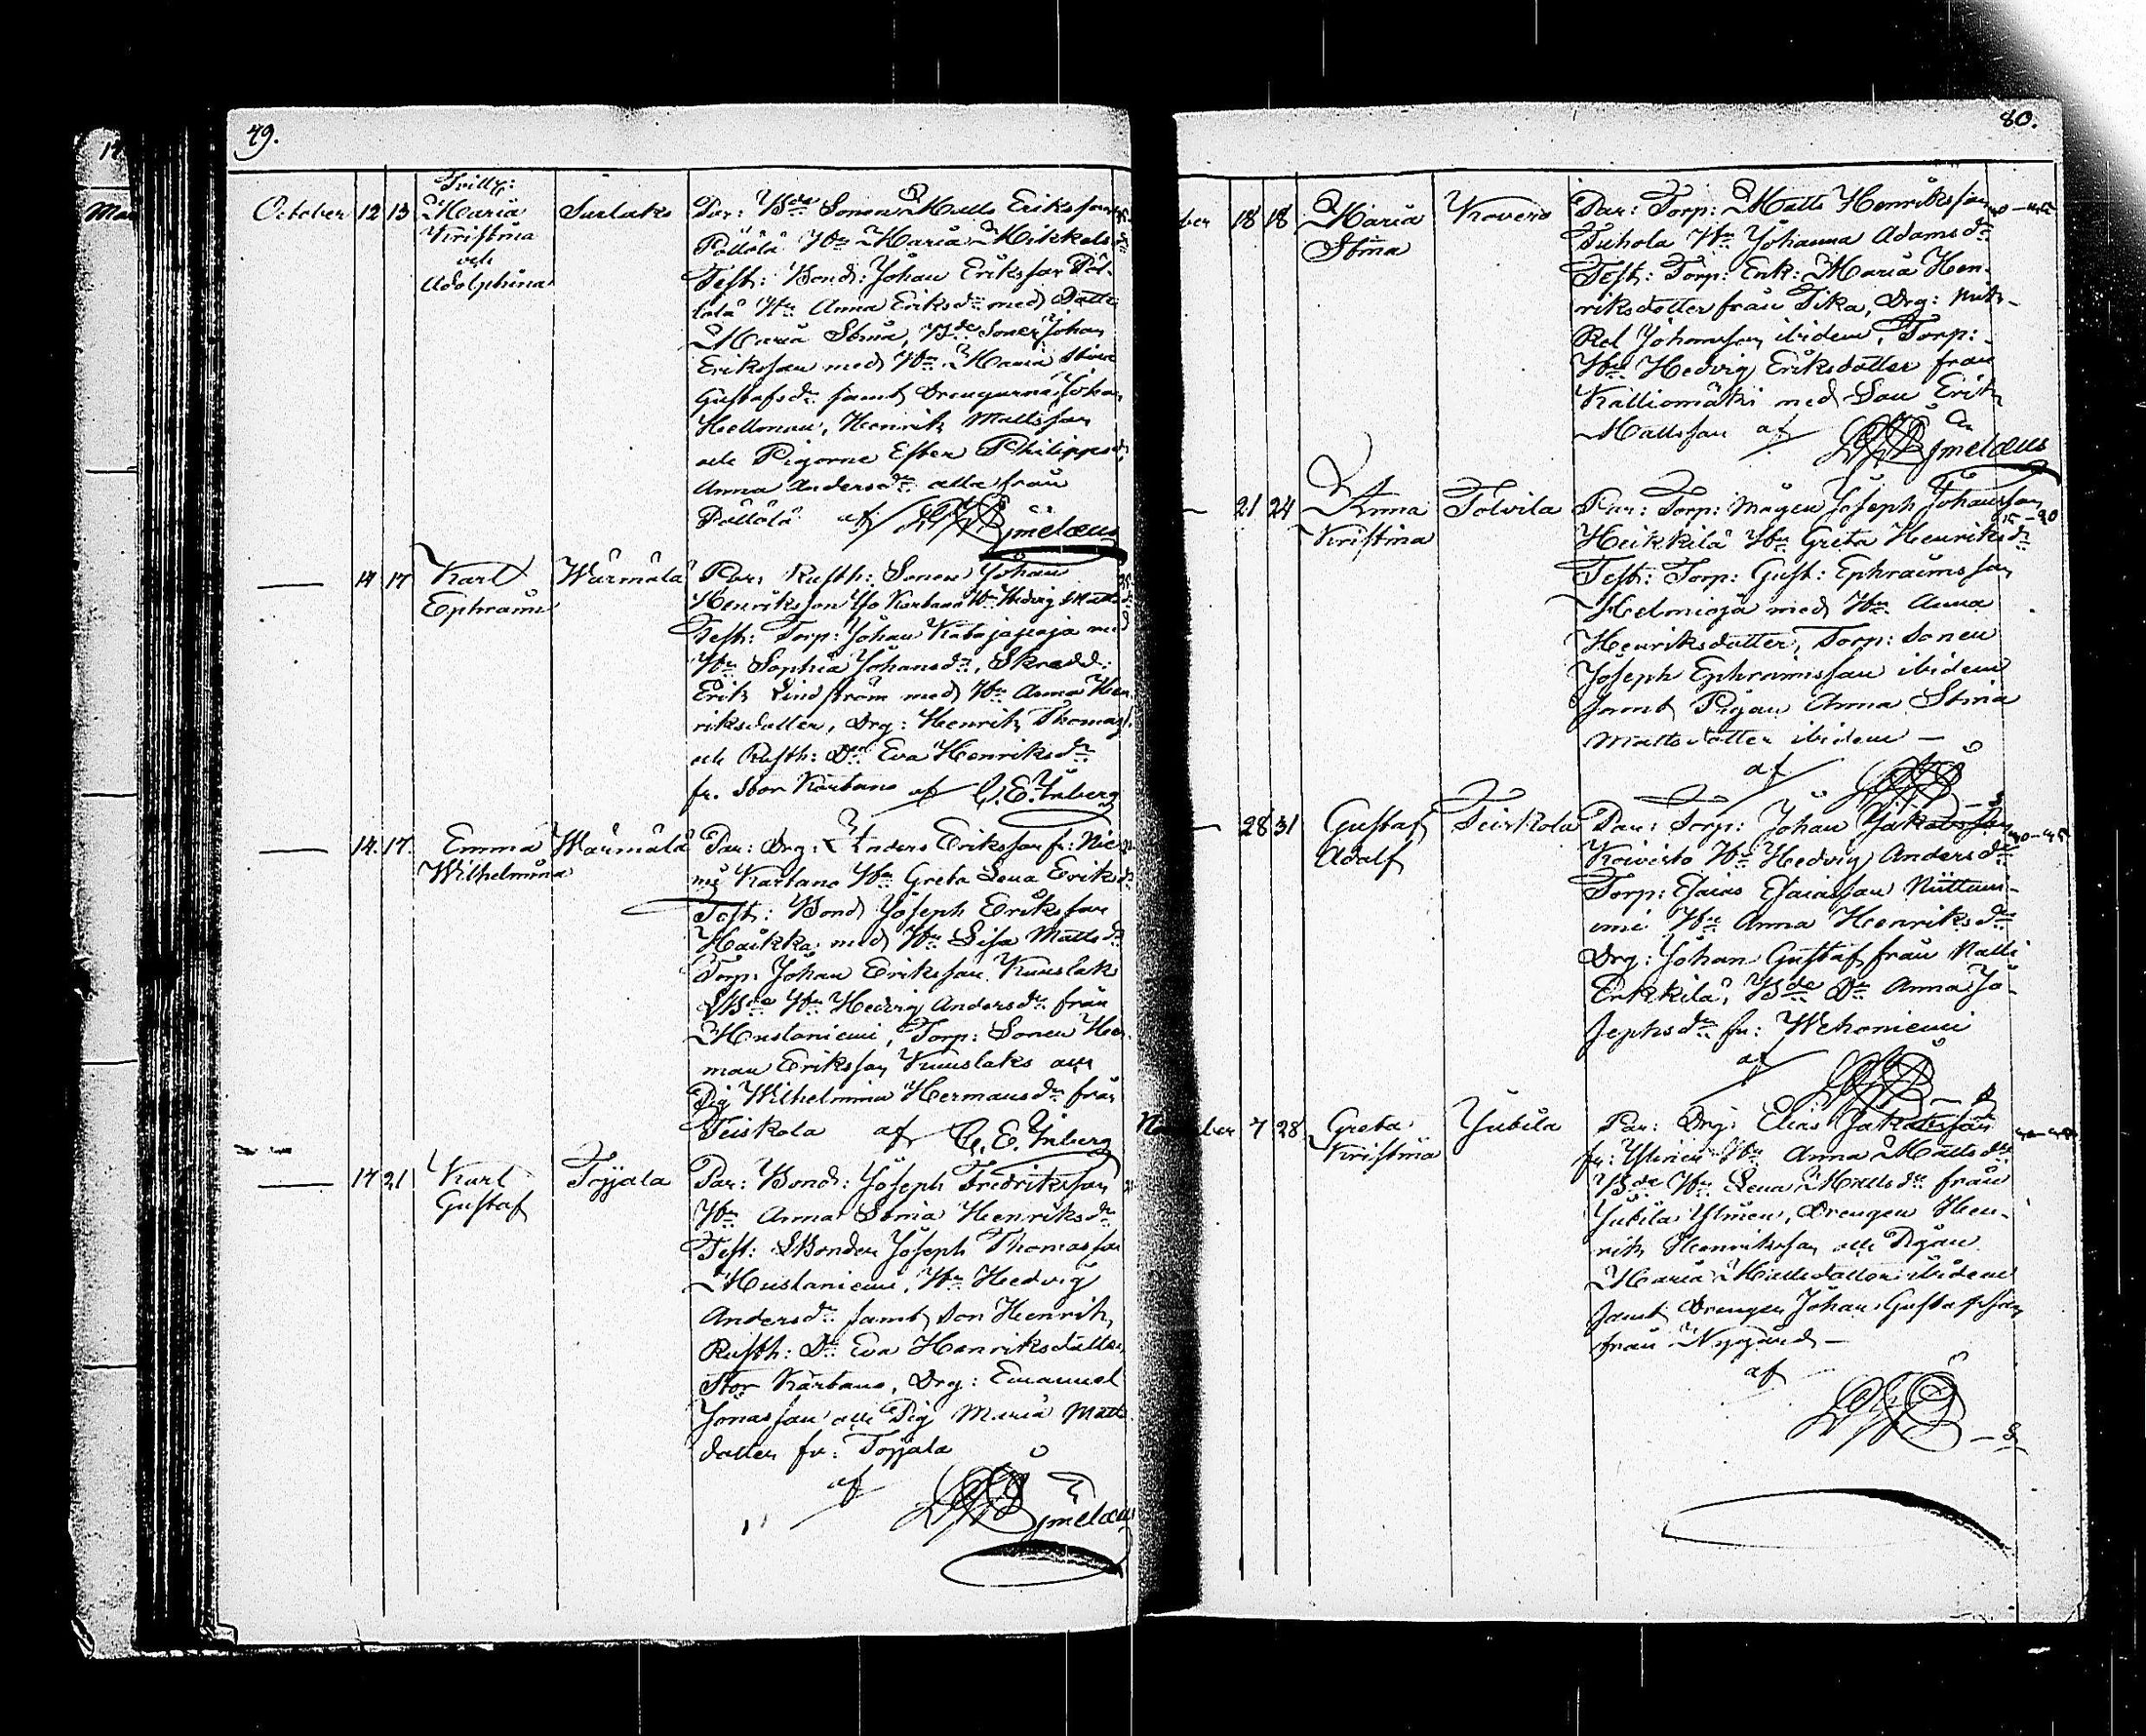 79.
October 12 13 Tvill:
Maria
Kristina
och
Adolphina
Surlaks
Par: Bde Sonen Matts Eriksson
Pöllölä Hu Maria Mikkelsdr
Test: Bond: Johan Eriksson Pöl-
lölä Hu Anna Eriksdr med Dotter
Maria Stina, Bde Sonen Johan
Eriksson med Hu Maria Stina
Gustafsdr samt Drengarne Johan
Hellman, Henrik Mattsson
och Pigorne Ester Philippsdr
Anna Andersdr alla från
Pöllölä af Limelæus
14 17 Karl
Ephraim
Wärmälä
Par: Rusth: Sonen Johan
Henriksson Iso Kartano Hu Hedvig Mattsdr
Test: Torp: Johan Katajapaja med
Hu Sophia Johansdr, Skradd:
Erik Lindström med Hu Anna Hen
riksdotter, Drg: Henrik Thomass:
och Rusth: Dr Eva Henriksdr
fr. Stor Kartano af C. E. Inberg
14. 17. Emma
Wilhelmina
Wärmälä
Par: Drg: Anders Eriksson fr: Nie
mi Kartano Hu Greta Lena Eriksdr
Test: Bond Joseph Eriksson
Haikka med Hu Lisa Mattsdr
Torp: Johan Eriksson Kuuslaks
Bde Hu Hedvig Andersdr från
Mustaniemi, Torp: Sonen Her
man Eriksson Kuuslaks och
Pig Wilhelmina Hermansdr från
Teiskola af C. E. Inberg
17 21 Karl
Gustaf
Tyjala
Par: Bond: Joseph Fredriksson
Hu Anna Stina Henriksdr
Test: Bonden Joseph Thomasson
Mustaniemi, Hu Hedvig
Andersdr samt Son Henrik,
Rusth: Dr Eva Henriksdotter
Stor Kartano, Drg: Emanuel
Jonasson och Pig Maria Matts
dotter fr: Tojjala
af Limelæus
80.
ber 18 18 Maria
Stina
Kovero
Par: Torp: Matts Henriksson
Tuhola Hu Johanna Adamsdr
Test: Torp: Enk: Maria Hen-
riksdotter från Tika, Drg: Mik-
kel Johansson ibidem, Torp:
Hu Hedvig Eriksdotter från
Kalliomäki med Son Erik
Mattsson af Limelæus
21 24 Anna
Kristina
Tolvila
Par: Torp: Mågen Joseph Johansson
Heikkilä Hu Greta Henriksdr
Test: Torp: Gust: Ephraimsson
Helmioja med Hu Anna
Henriksdotter, Torp: Sonen
Joseph Ephraimsson ibidem
samt Pigan Anna Stina
Mattsdotter ibidem —
af
28 31 Gustaf
Adolf
Teiskola
Par: Torp: Johan Jakobsson
Koivisto Hu Hedvig Andersdr
Torp: Esaias Esaiasson Niittum-
mi Hu Anna Henriksdr
Drg: Johan Gustaf från Nalli
Erkkilä, Bde Dr Anna Jo-
sephsdr fr: Wehoniemi
af
November 7 28 Greta
Kristina
Jutila
Par: Drg: Elias Jakobsson
fr: Ylinen Hu Anna Mattsdr
Bde Hu Lena Mattsdr från
Jutila Ylinen, Drengen Hen-
rik Henriksson och Pigan
Maria Mattsdotter ibidem
samt Drengen Johan Gustafsson
från Nygård —
af